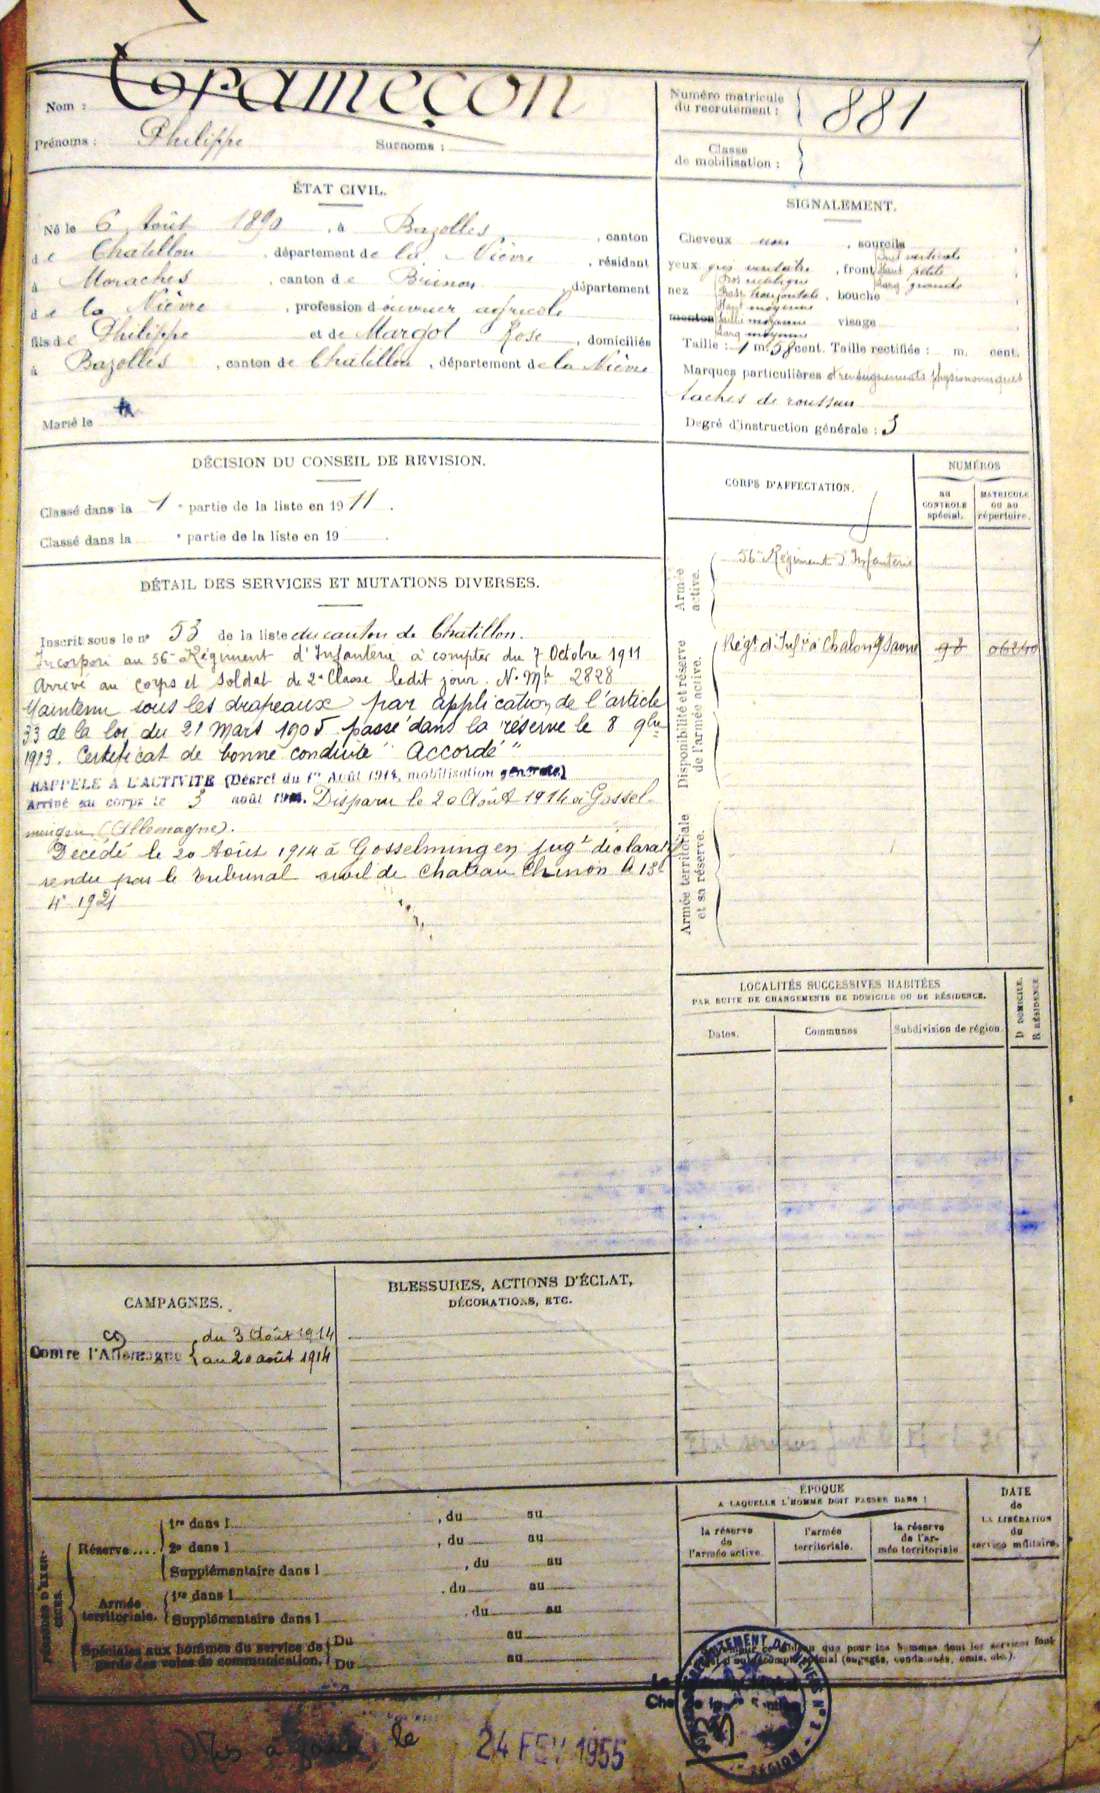 Nom : Trameçon
Prénoms : Philippe Surnoms :
Numéro matricule
du recrutement : 881
Classe
de mobilisation :
ÉTAT CIVIL.
Né le 6 Août 1890, à Bazolles, canton
de Chatillon, département de la Nièvre, résidant
à Moraches, canton de Brinon, département
de la Nièvre, profession d'ouvrier agricole
fils de Philippe et de Margot Rose, domiciliés
à Bazolles, canton de Chatillon, département de la Nièvre
Marié le
SIGNALEMENT.
Cheveux, sourcils
yeux gris verdatre, front Incl verticale
Haut petite
Larg grande
nez Dos rectiligne
Base horizontale, bouche
Haut moyenne
menton Saillie moyenne visage
Larg moyenne
Taille : 1 m. 58 cent. Taille rectifiée : m. cent.
Marques particulières et renseignements physionomiques
taches de rousseur
Degré d'instruction générale : 3
DÉCISION DU CONSEIL DE REVISION.
Classé dans la 1e partie de la liste en 1911.
Classé dans la e partie de la liste en 19
DÉTAIL DES SERVICES ET MUTATIONS DIVERSES.
Inscrit sous le n° 53 de la liste du canton de Chatillon.
Incorporé au 56e Régiment d'Infanterie à compter du 7 Octobre 1911
Arrivé au corps et soldat de 2e Classe ledit jour. N° Mle 2828
Maintenu sous les drapeaux par application de l'article
33 de la loi du 21 mars 1905 passé dans la réserve le 8 9bre
1913. Certificat de bonne conduite "Accordé"
RAPPELÉ A L'ACTIVITÉ (Décret du 1er Août 1914, mobilisation générale)
Arrivé au corps le 3 août 1914. Disparu le 20 Août 1914 à Gossel-
mingen (Allemagne).
Décédé le 20 Août 1914 à Gosselmingen jugt déclaratif
rendu par le tribunal civil de Chateau Chinon le
4e 1921
CORPS D'AFFECTATION.
NUMÉROS
AU
CONTROLE
spécial.
MATRICULE
OU AU
répertoire.
Armée
active.
56e Régiment d'Infanterie
Disponibilité et réserve
de l'armée active.
Régt d'Infie à Chalon s/ Saone
Armée territoriale
et sa réserve.
LOCALITÉS SUCCESSIVES HABITÉES
PAR SUITE DE CHANGEMENTS DE DOMICILE OU DE RÉSIDENCE.
Dates.
Communes
Subdivision de région
D DOMICILE.
R RÉSIDENCE
CAMPAGNES.
Contre l'Allemagne du 3 Août 1914
au 20 août 1914
BLESSURES, ACTIONS D'ÉCLAT,
DÉCORATIONS, ETC.
PÉRIODES D'EXER-
CICES.
Réserve.... 1re dans l , du au
2e dans l , du au
Supplémentaire dans l , du au
Armée
territoriale. 1re dans l , du au
Supplémentaire dans l , du au
Spéciales aux hommes du service de
garde des voies de communication. Du au
Du au
ÉPOQUE
A LAQUELLE L'HOMME DOIT PASSER DANS :
la réserve
de
l'armée active.
l'armée
territoriale.
la réserve
de l'ar-
mée territoriale
DATE
de
LA LIBÉRATION
du
service militaire.
que pour les hommes dont les services font
spécial (engagés, condamnés, omis, etc.).
Mis à jour, le 24 FEV 1955